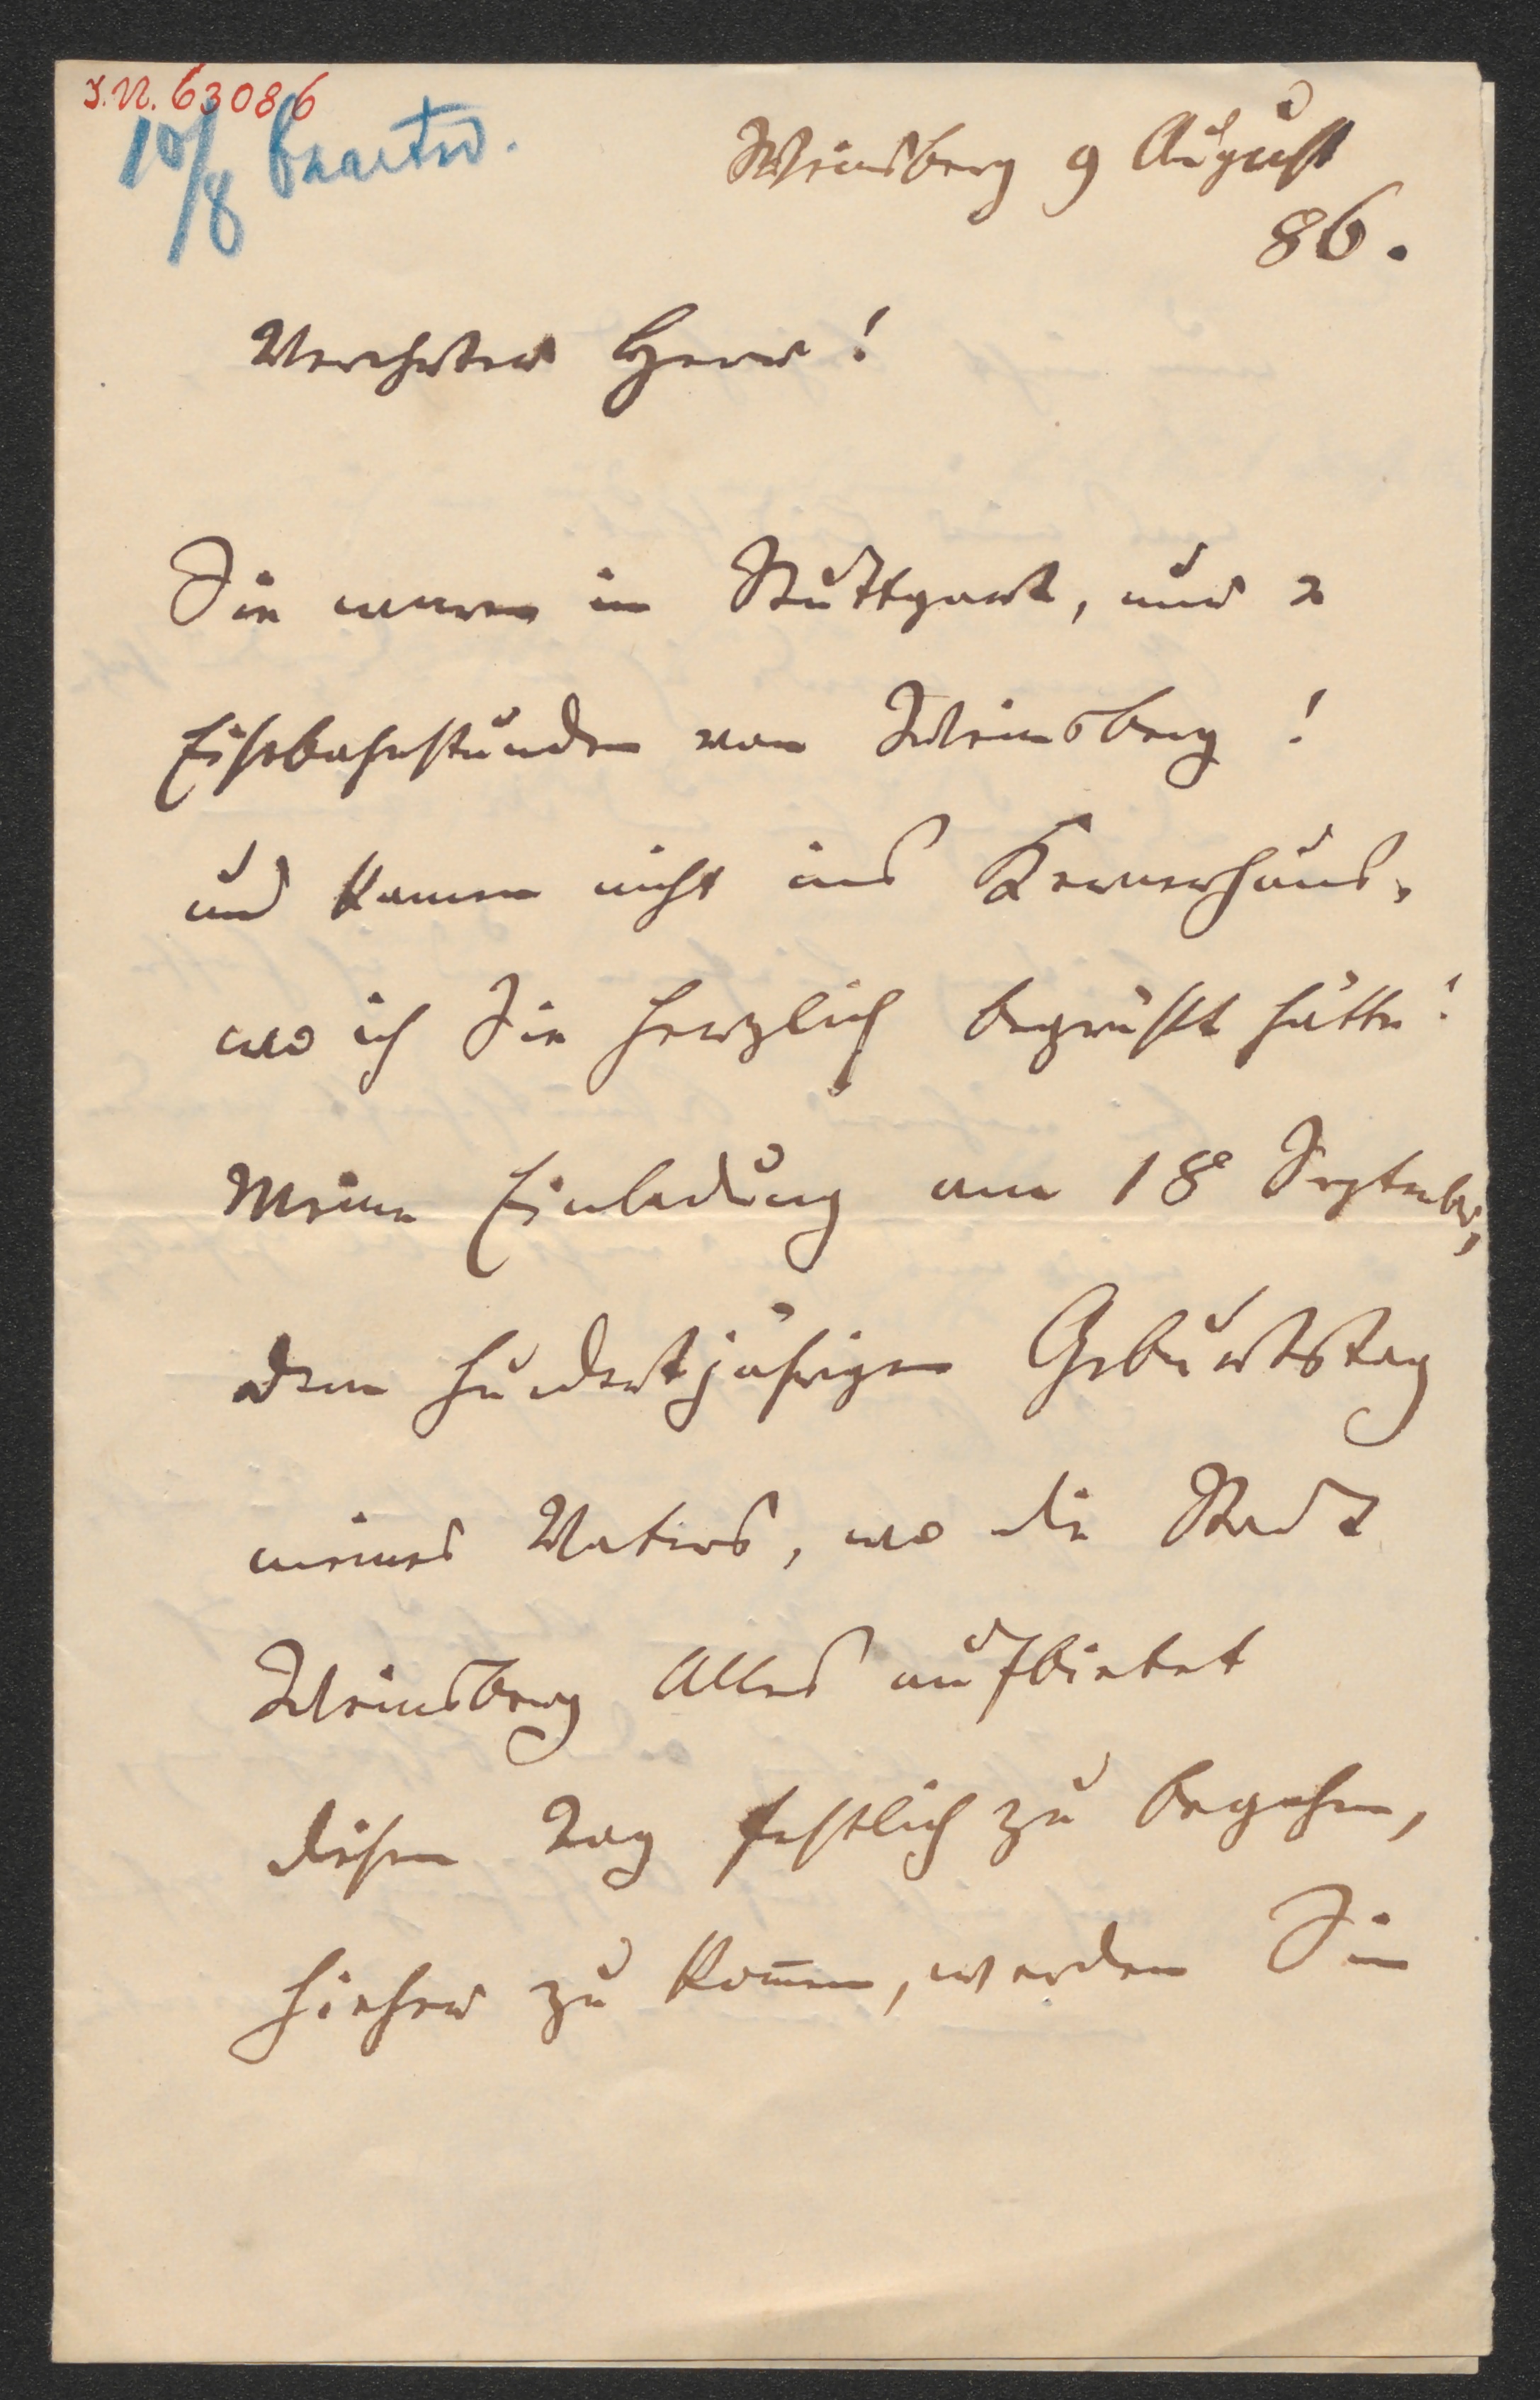 J.N. 63086
10/8 beantw.
Weinsberg 9 August
86.
Verehrter Herr!
Sie waren in Stuttgart, nur 2
Eisebahnstunden von Weinsberg!
und kamen nicht ins Kernerhaus,
wo ich Sie herzlich begrüßt hätte!
Meine Einladung am 18e September,
dem hundertjährigen Geburtstag
meines Vaters, wo die Stadt
Weinsberg Alles aufbietet
diesen Tag festlich zu begehen,
hieher zu kom̄en, werden Sie